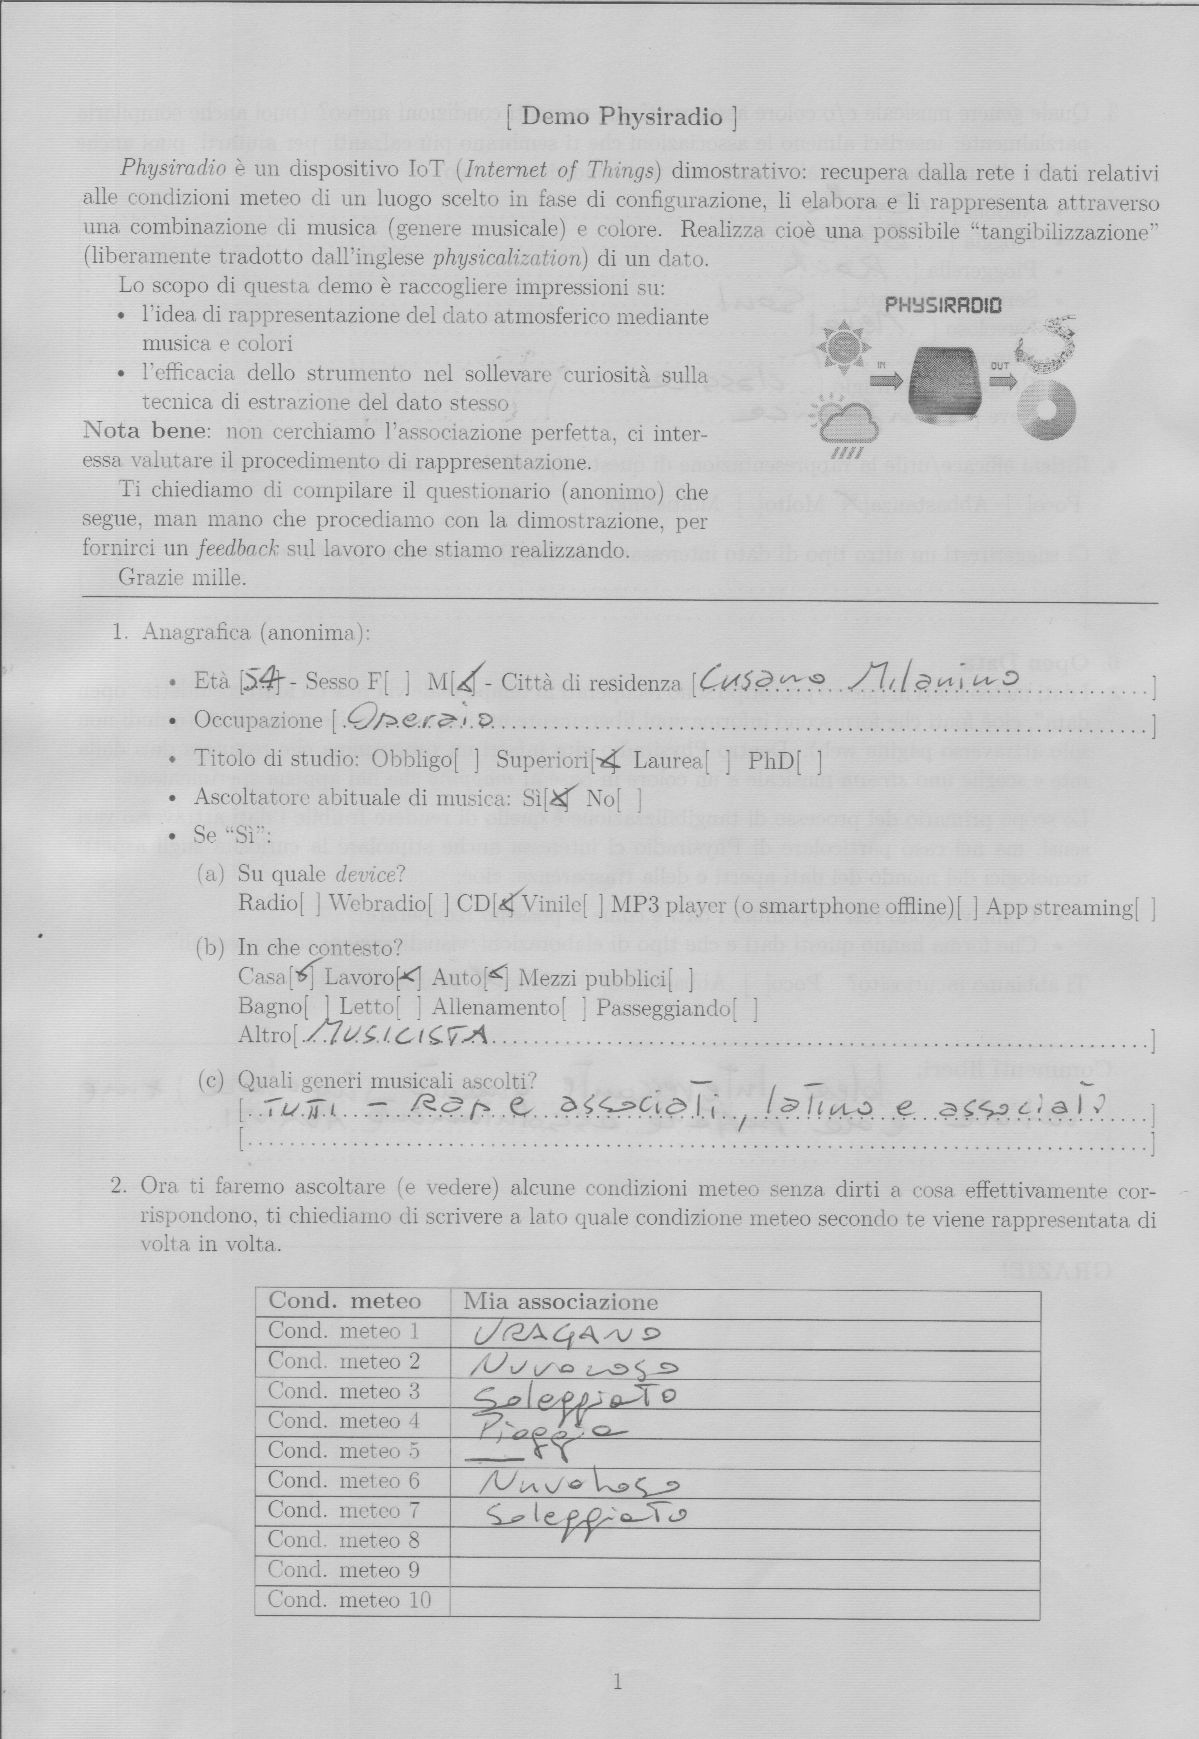 [ Demo Physiradio ]
Physiradio è un dispositivo IoT (Internet of Things) dimostrativo: recupera dalla rete i dati relativi
alle condizioni meteo di un luogo scelto in fase di configurazione, li elabora e li rappresenta attraverso
una combinazione di musica (genere musicale) e colore. Realizza cioè una possibile “tangibilizzazione”
(liberamente tradotto dall'inglese physicalization) di un dato.
Lo scopo di questa demo è raccogliere impressioni su:
• l'idea di rappresentazione del dato atmosferico mediante
musica e colori
• l'efficacia dello strumento nel sollevare curiosità sulla
tecnica di estrazione del dato stesso
PHYSIRADIO
IN
OUT
Nota bene: non cerchiamo l'associazione perfetta, ci inter-
essa valutare il procedimento di rappresentazione.
Ti chiediamo di compilare il questionario (anonimo) che
segue, man mano che procediamo con la dimostrazione, per
fornirci un feedback sul lavoro che stiamo realizzando.
Grazie mille.
1. Anagrafica (anonima):
• Età [54] - Sesso F[ ] M[x] - Città di residenza [Cusano Milanino]
• Occupazione [Operaio]
• Titolo di studio: Obbligo[ ] Superiori[x] Laurea[ ] PhD[ ]
• Ascoltatore abituale di musica: Sì[x] No[ ]
• Se “Sì”:
(a) Su quale device?
Radio[ ] Webradio[ ] CD[x] Vinile[ ] MP3 player (o smartphone offline)[ ] App streaming[ ]
(b) In che contesto?
Casa[x] Lavoro[x] Auto[x] Mezzi pubblici[ ]
Bagno[ ] Letto[ ] Allenamento[ ] Passeggiando[ ]
Altro[MUSICISTA]
(c) Quali generi musicali ascolti?
[TUTTI - Rap e associati, latino e associati]
[]
2. Ora ti faremo ascoltare (e vedere) alcune condizioni meteo senza dirti a cosa effettivamente cor-
rispondono, ti chiediamo di scrivere a lato quale condizione meteo secondo te viene rappresentata di
volta in volta.
Cond. meteo Mia associazione
Cond. meteo 1 URAGANO
Cond. meteo 2 Nuvoloso
Cond. meteo 3 Soleggiato
Cond. meteo 4 Pioggia
Cond. meteo 5 —
Cond. meteo 6 Nuvoloso
Cond. meteo 7 Soleggiato
Cond. meteo 8
Cond. meteo 9
Cond. meteo 10
1